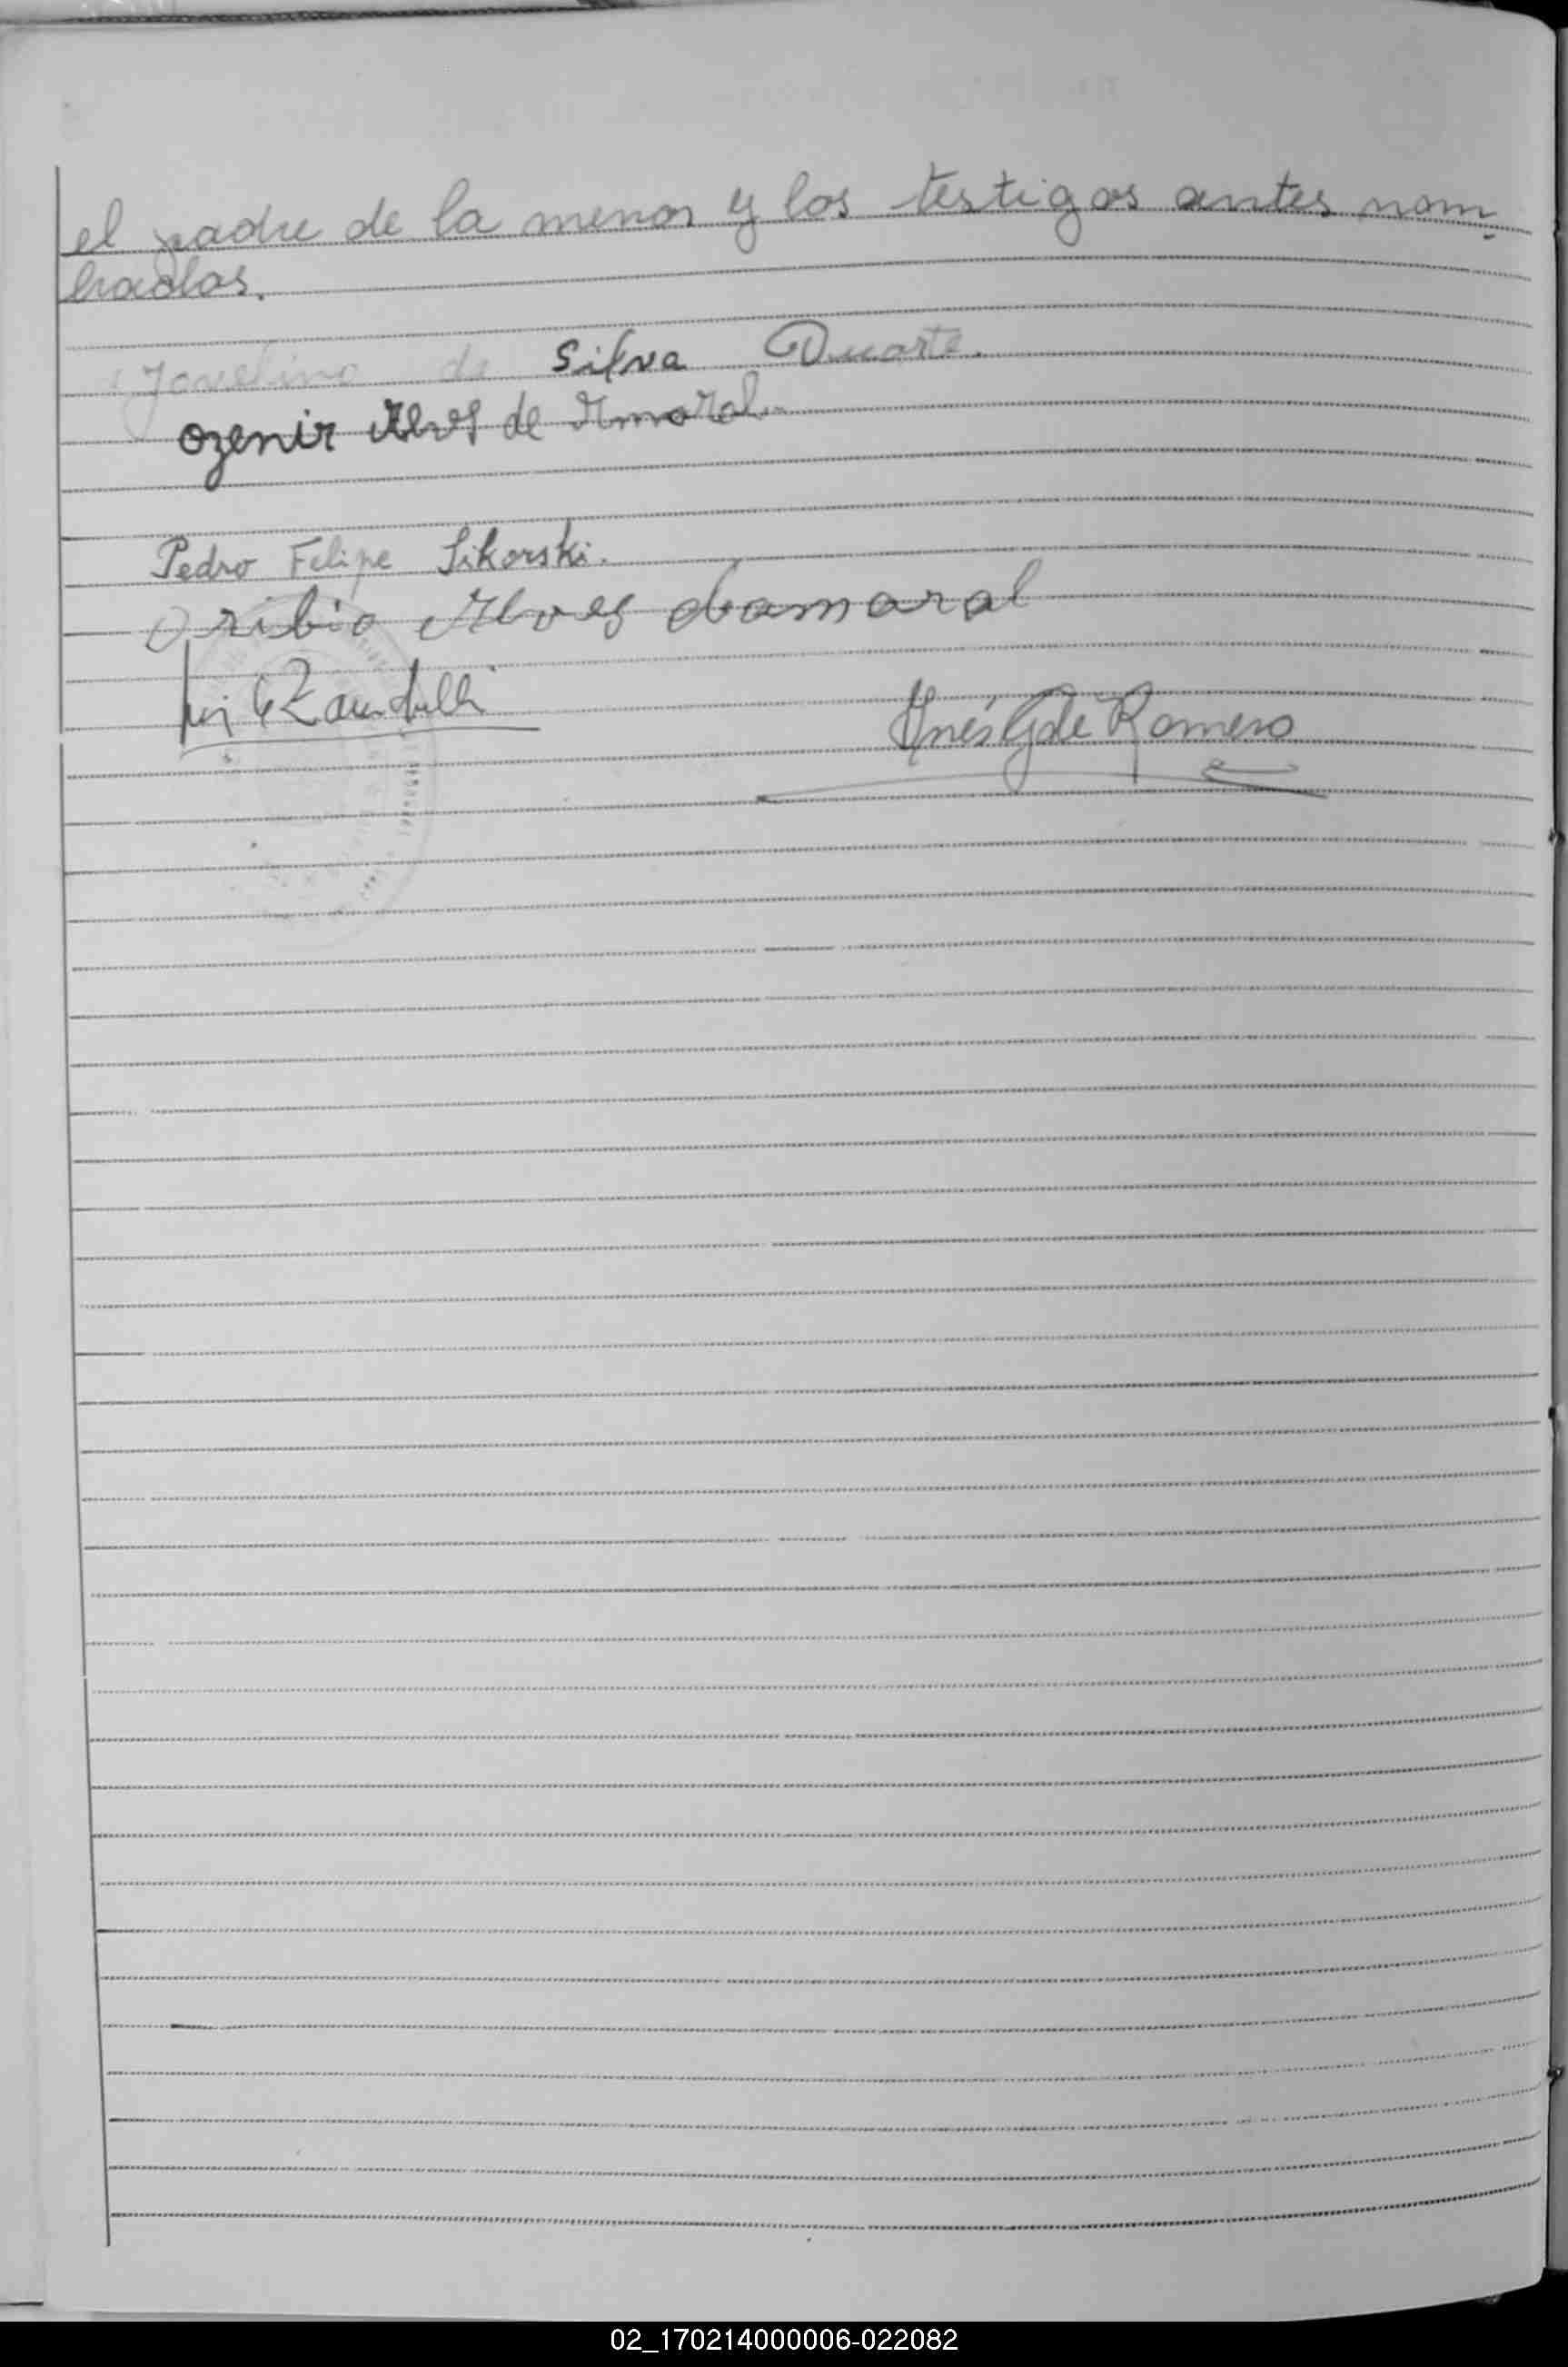 el padre de la menor y los testigos antes nom
brados.
Jovelino de Silva Duarte.
Ozenir Alves de Amaral.
Pedro Felipe Sikorski.
Oribio Alves damaral
Inés G de Romero
02_170214000006-022082